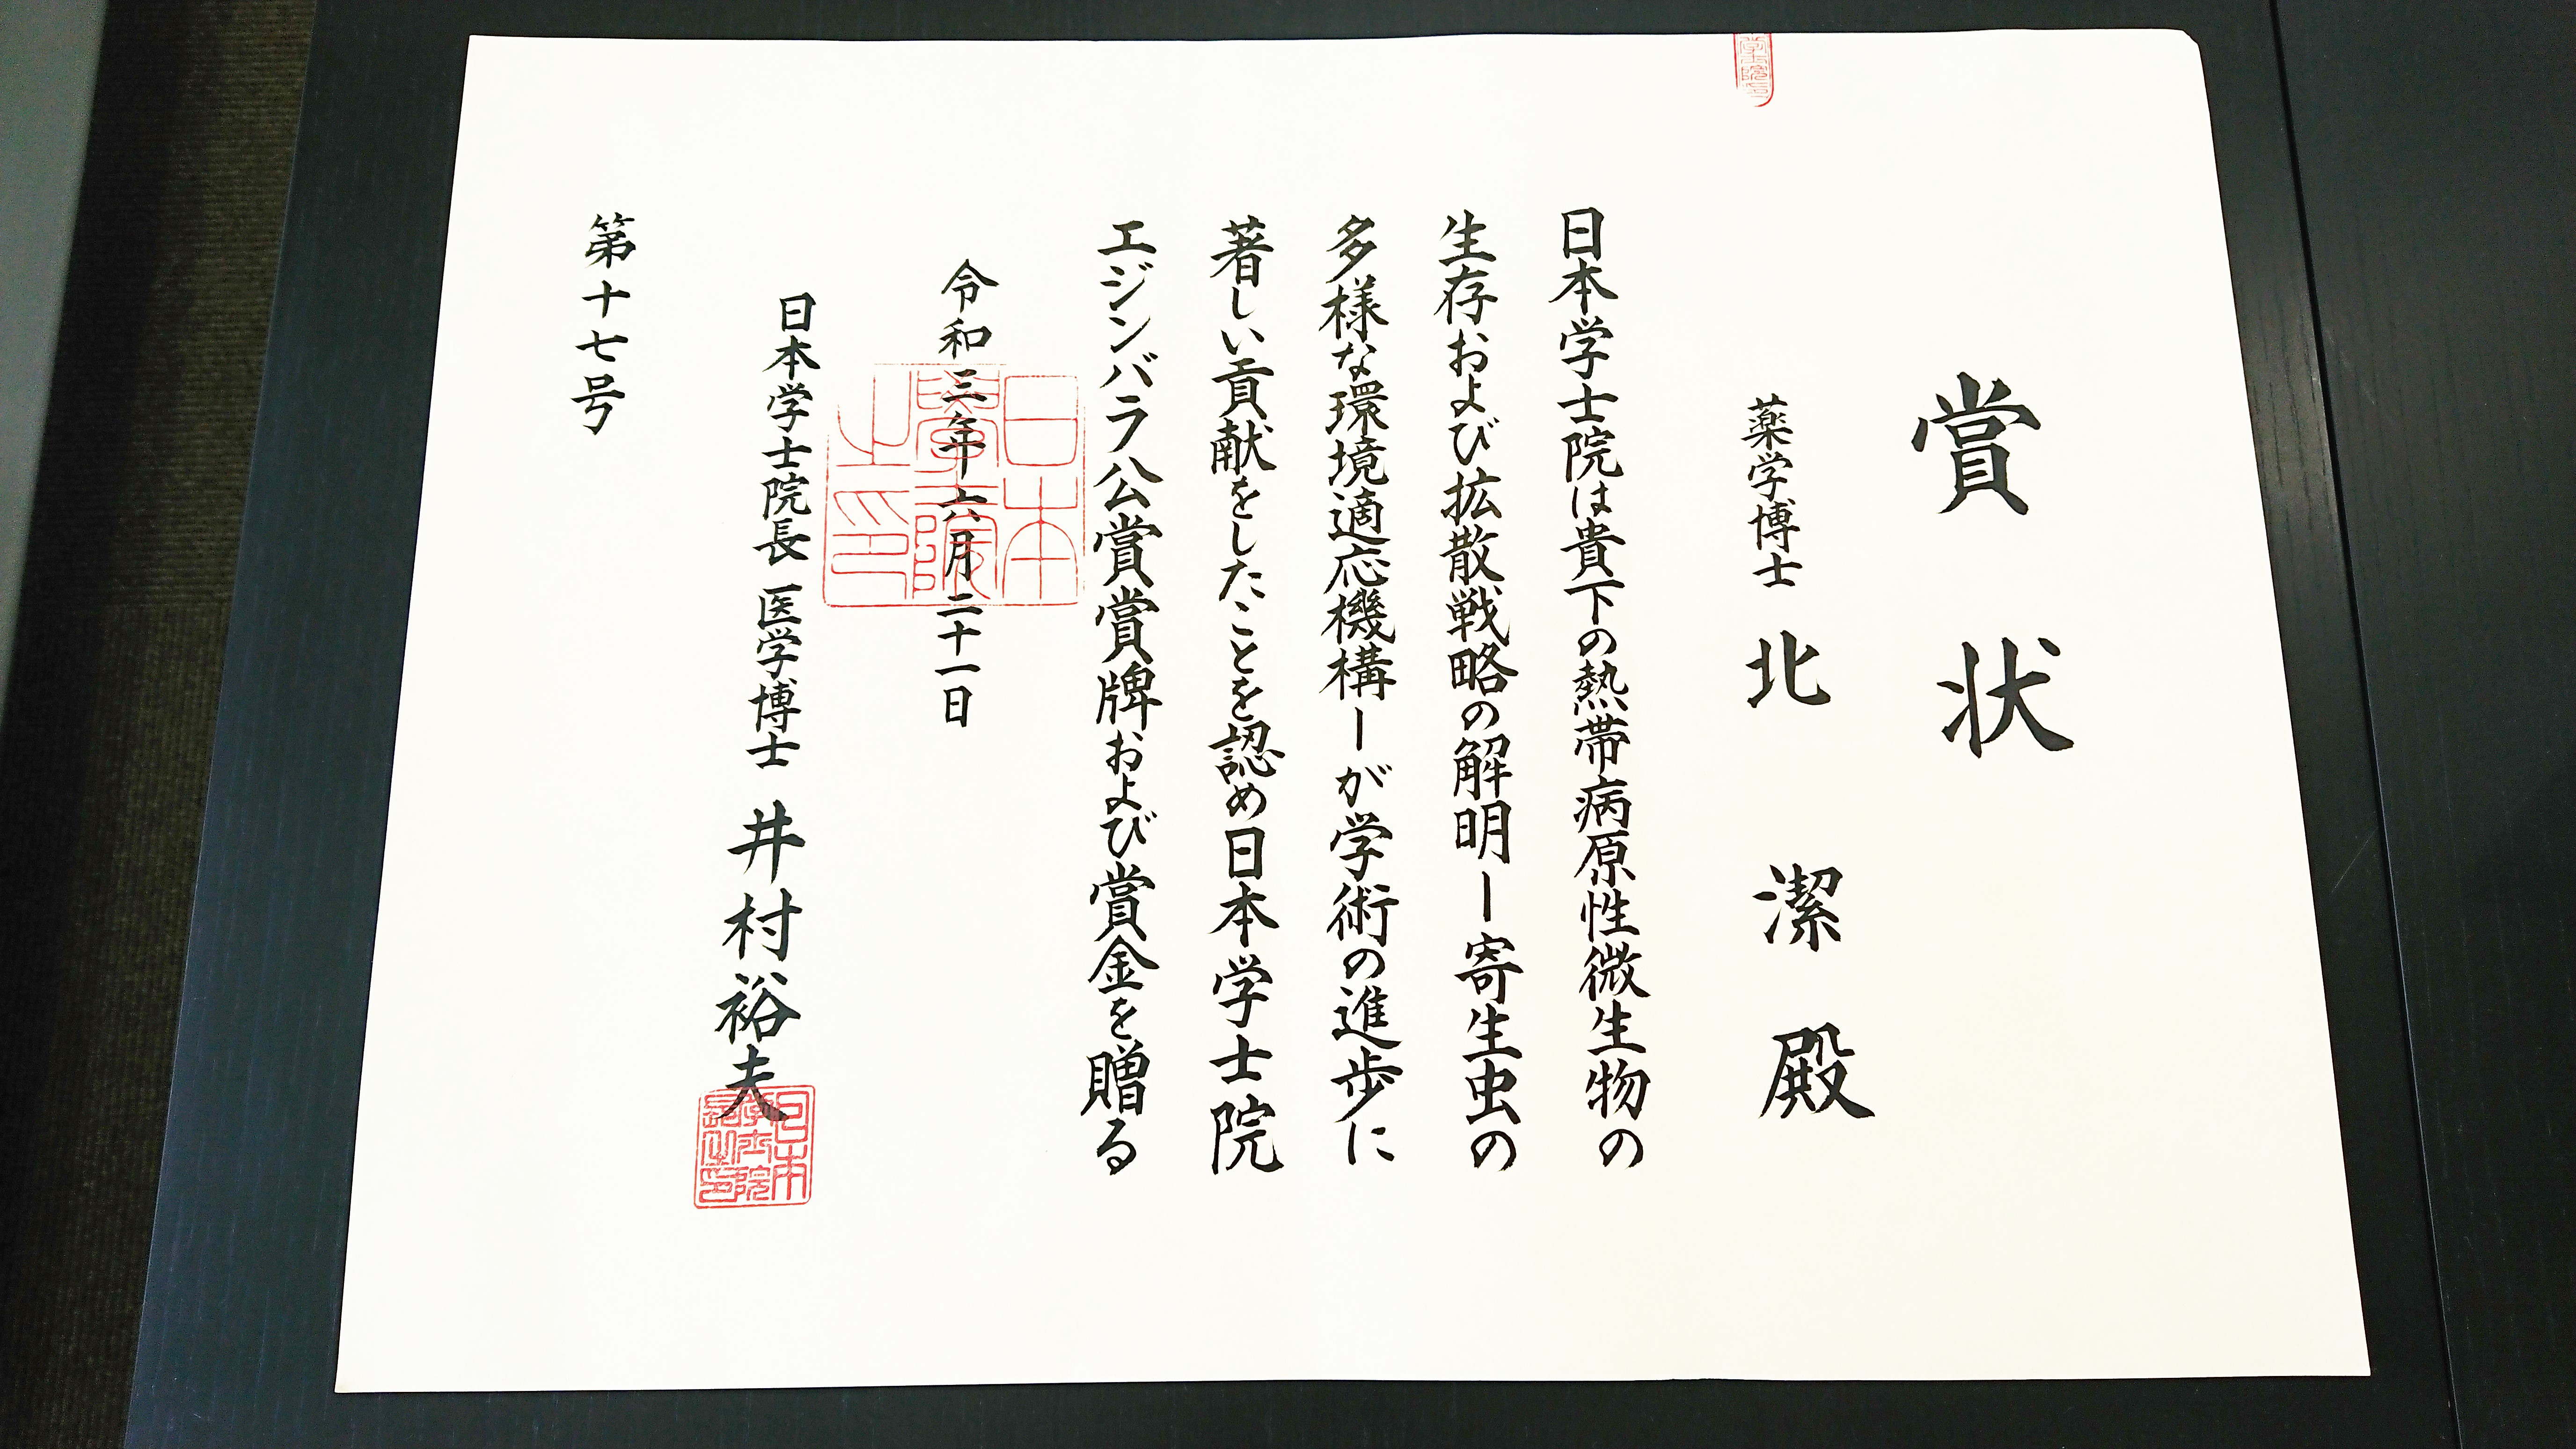 賞状
薬学博士 北 潔 殿
日本学士院は貴下の熱帯病原性微生物の
生存および拡散戦略の解明ー寄生虫の
多様な環境適応機構ーが学術の進歩に
著しい貢献をしたことを認め日本学士院
エジンバラ公賞賞牌および賞金を贈る
令和三年六月二十一日
日本学士院長 医学博士 井村裕夫
第十七号
日本
學士院
之印
日本
學士院
長之印